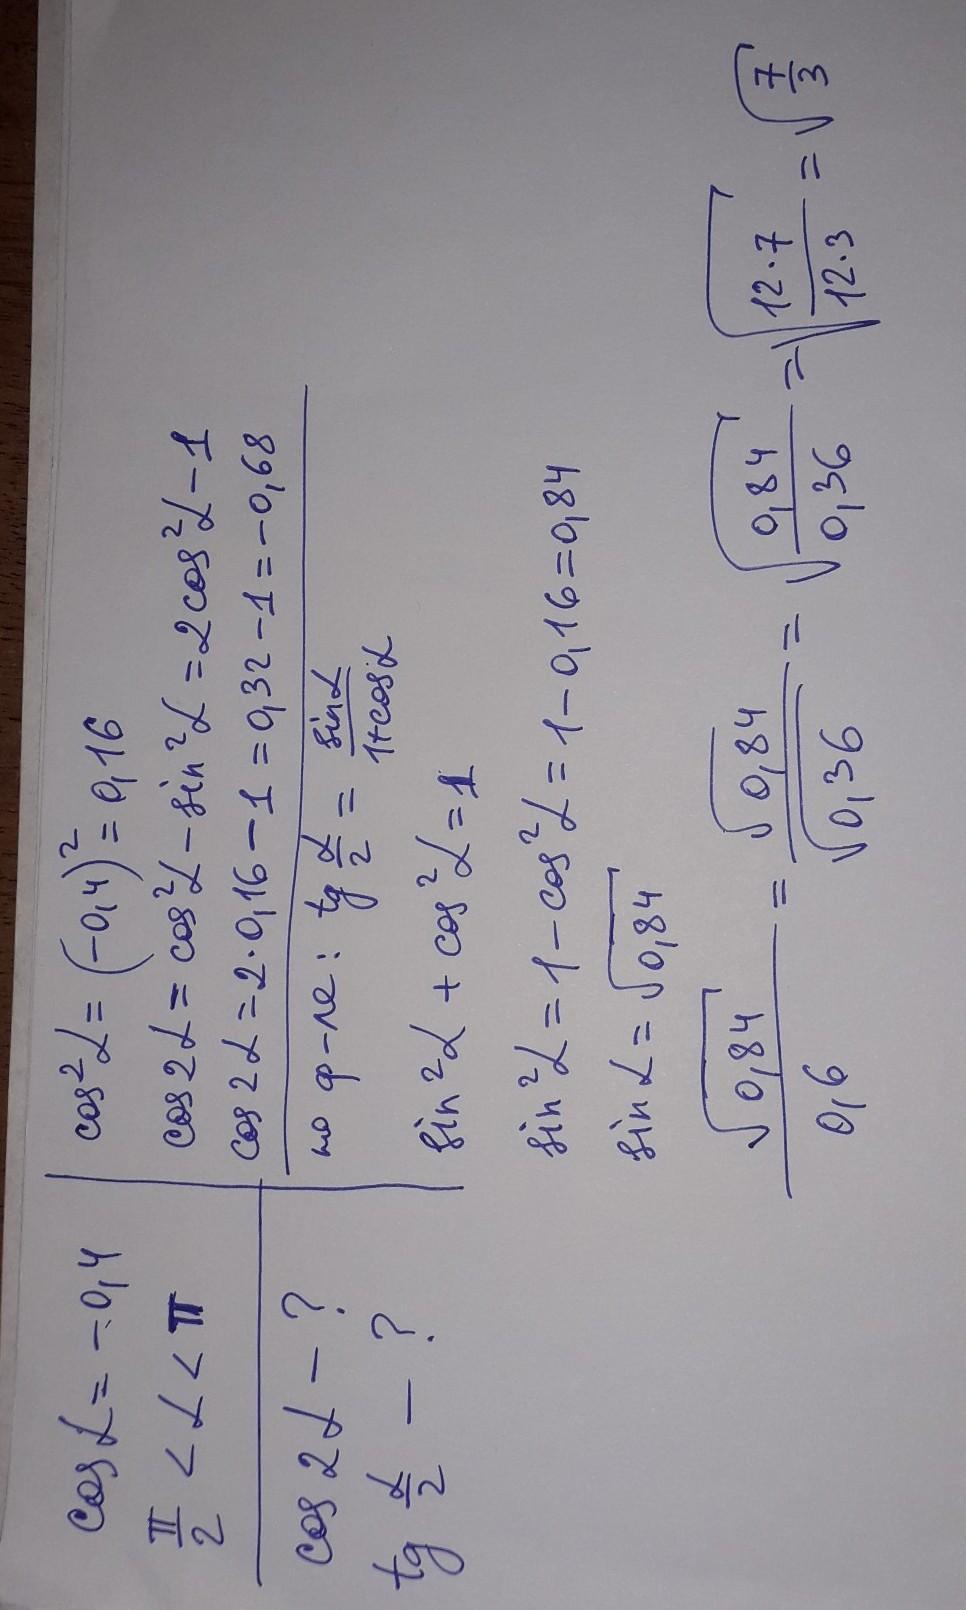 cos α = -0,4
π/2 < α < π
cos 2α - ?
tg α/2 - ?
cos²α = (-0,4)² = 0,16
cos 2α = cos²α - sin²α = 2cos²α - 1
cos 2α = 2·0,16 - 1 = 0,32 - 1 = -0,68
по ф-ле: tg α/2 = sin α/(1+cos α)
sin²α + cos²α = 1
sin²α = 1 - cos²α = 1 - 0,16 = 0,84
sin α = √0,84
√0,84/0,6 = √0,84/√0,36 = √(0,84/0,36) = √(12·7/12·3) = √(7/3)